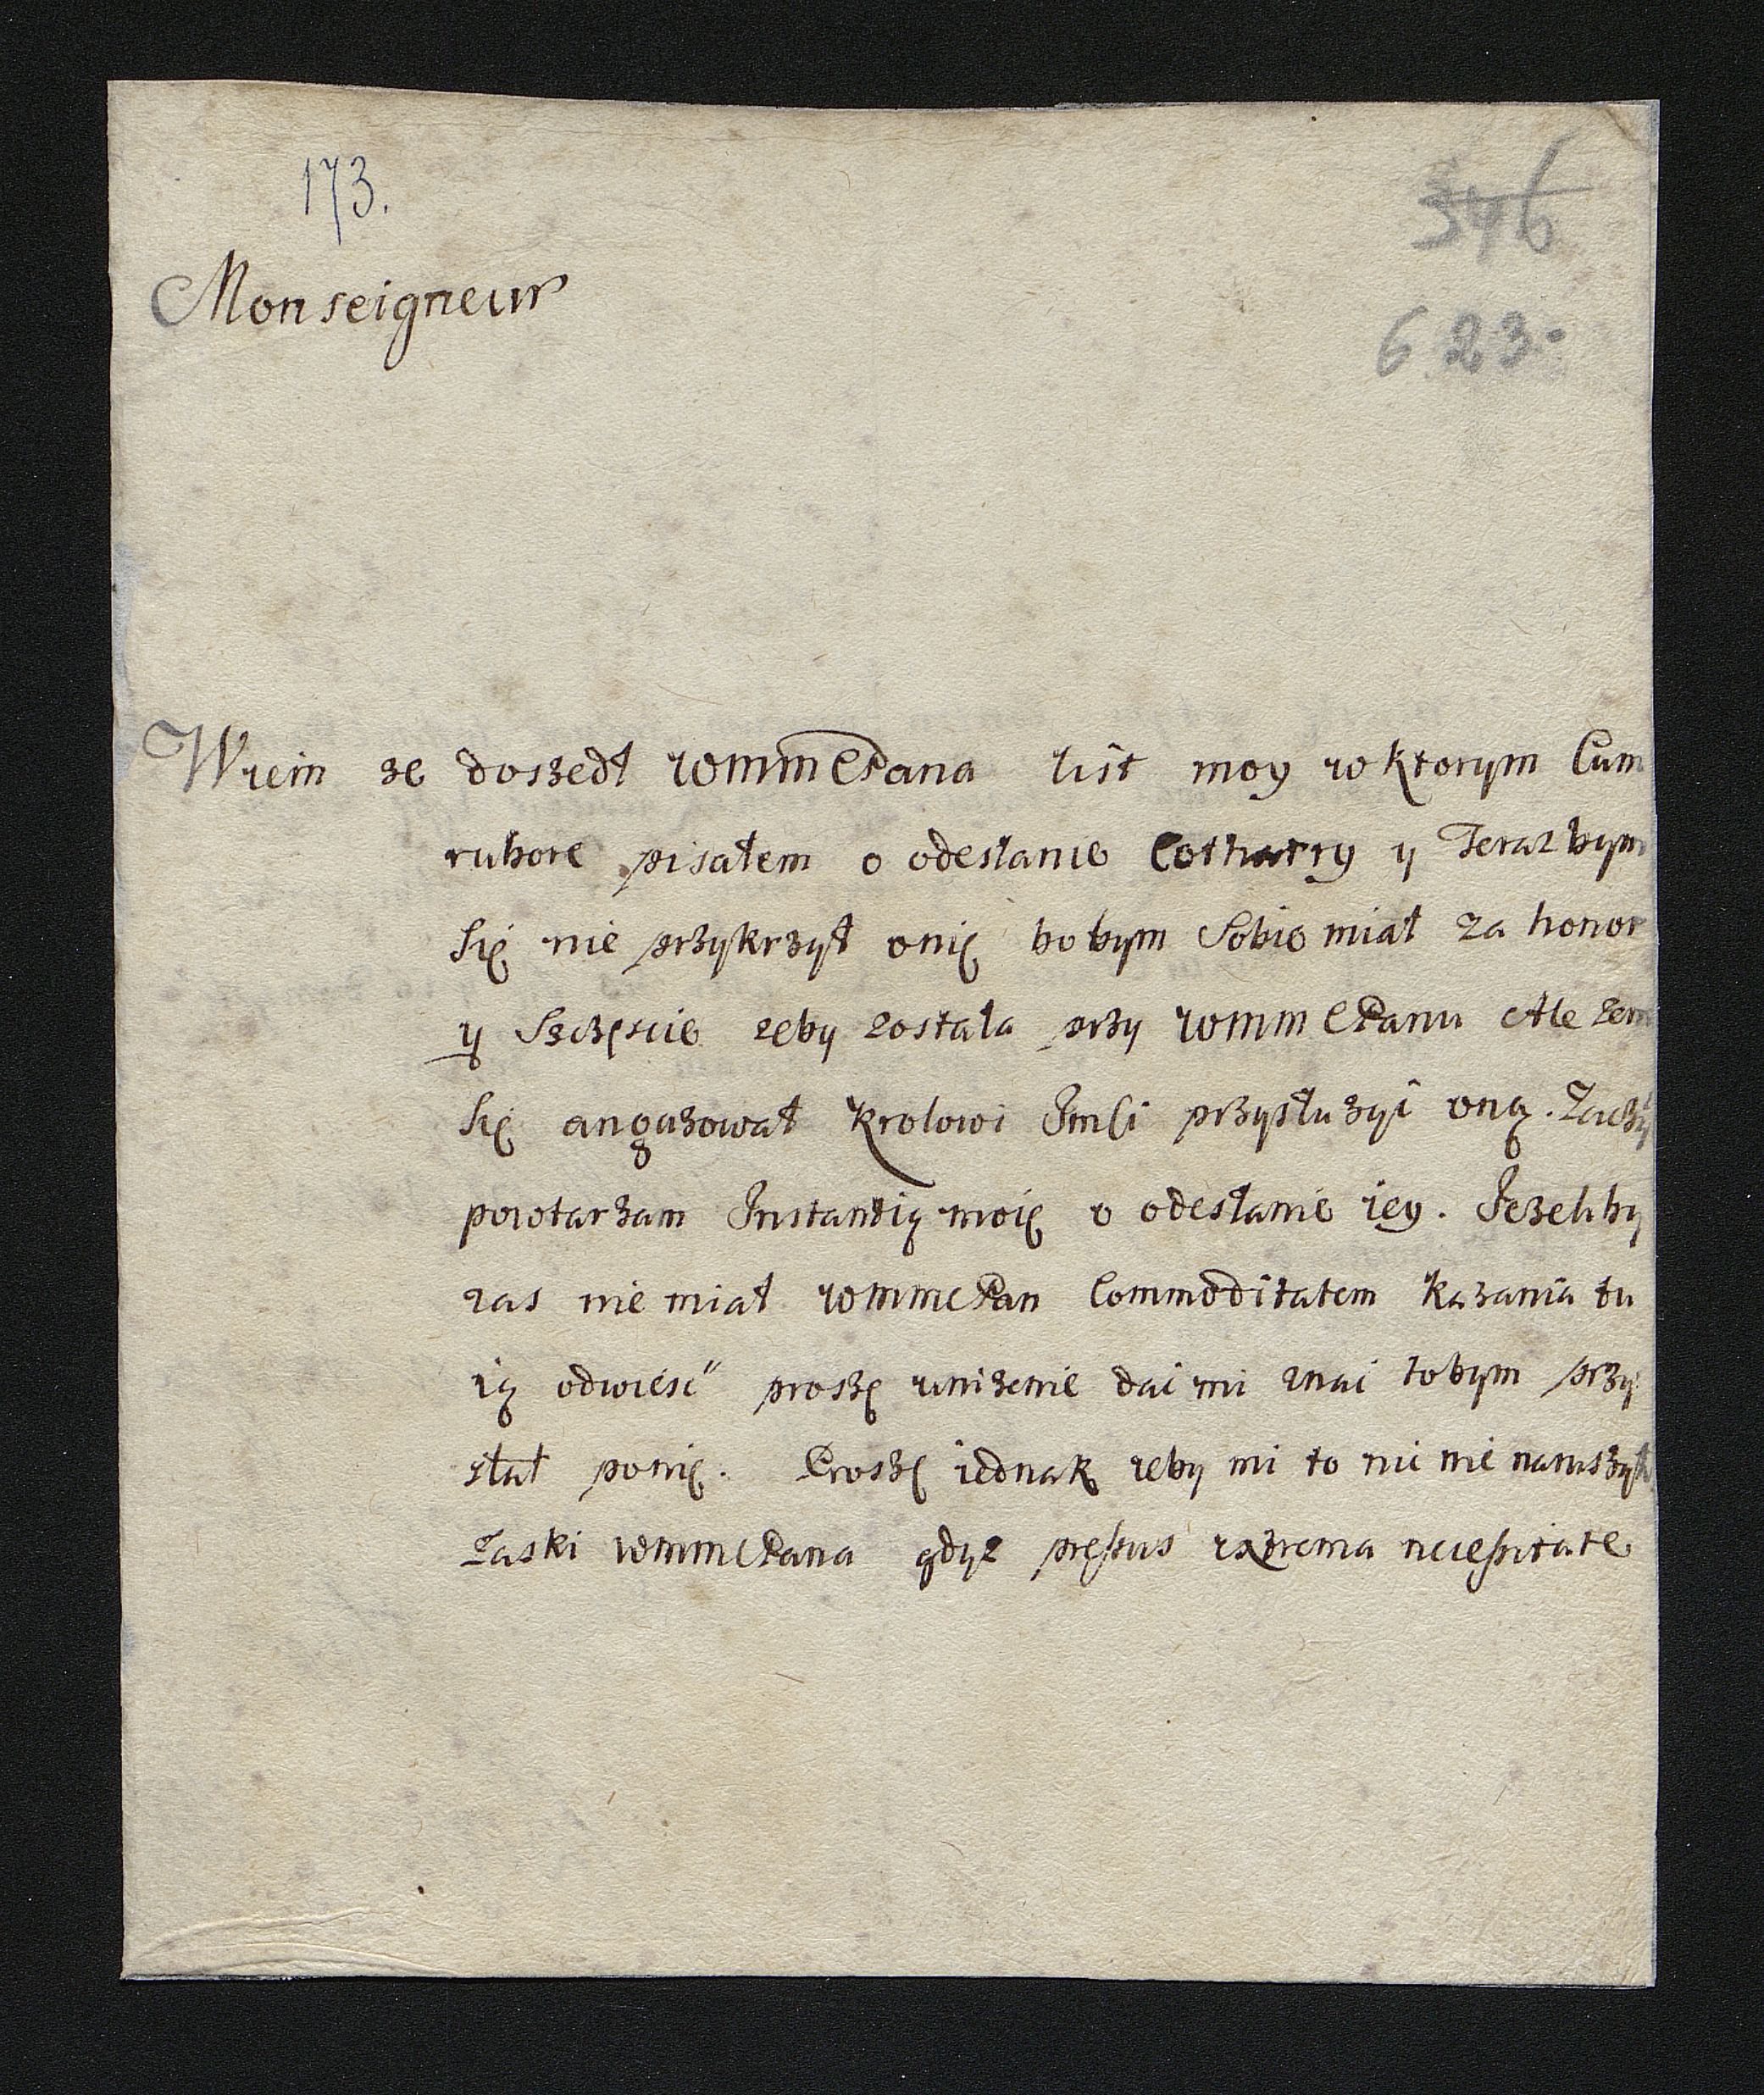 173.
346
Monseigneur
623.
Wiem ze doszedł WMM Pana list moy w ktorym Cum
rubore pisałem o odesłanie Cotharry y Teraz bym
się nie przykrzył onię bo bym Sobie miał za honor
y Szczęscie zeby została przy WMM Panu Ale zem
się angazował Krolowi Jmsci przysłuzyć oną. Zaczy
powtarzam Instantią moię o odesłanie iey. Jezeliby
zas nie miał WMM Pan Commoditatem kazania tu
ią odwiesć proszę unizenie dać mi znać tobym przy
słał ponię. Proszę iednak zeby mi to nic nie naruszyło
łaski WMM Pana gdyz pressus extrema necessitate